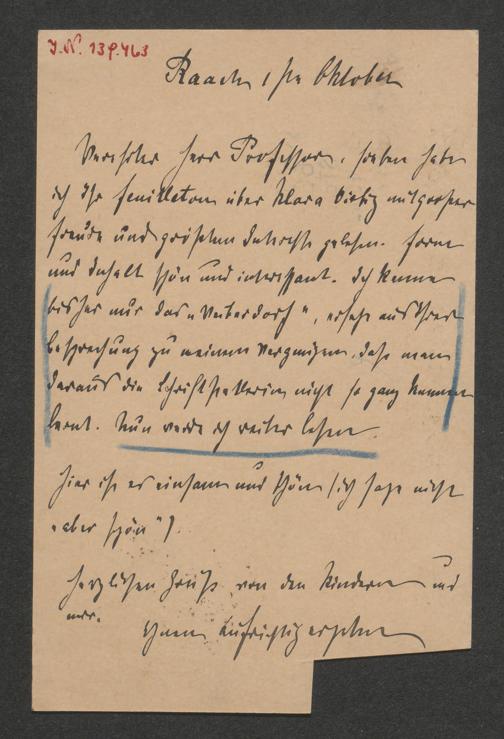 J.N. 139.463
Raach 1ste Oktober
Verehrter Herr Professor, soeben habe
ich Ihr Feuilleton über Klara Viebig mit grosser
Freude und größtem Interesse gelesen. Form
und Inhalt schön und interessant. Ich kenne
bisher nur das „Weiberdorf", ersehe aus Ihrer
Besprechung zu meinem Vergnügen, dass man
daraus die Schriftstellerin nicht so ganz kennen
lernt. Nun werde ich weiter lesen.
Hier ist es einsam und schön (ich sage nicht
„aber schön").
Herzlichen Gruß von den Kindern und
mir.
Ihnen aufrichtig ergeben